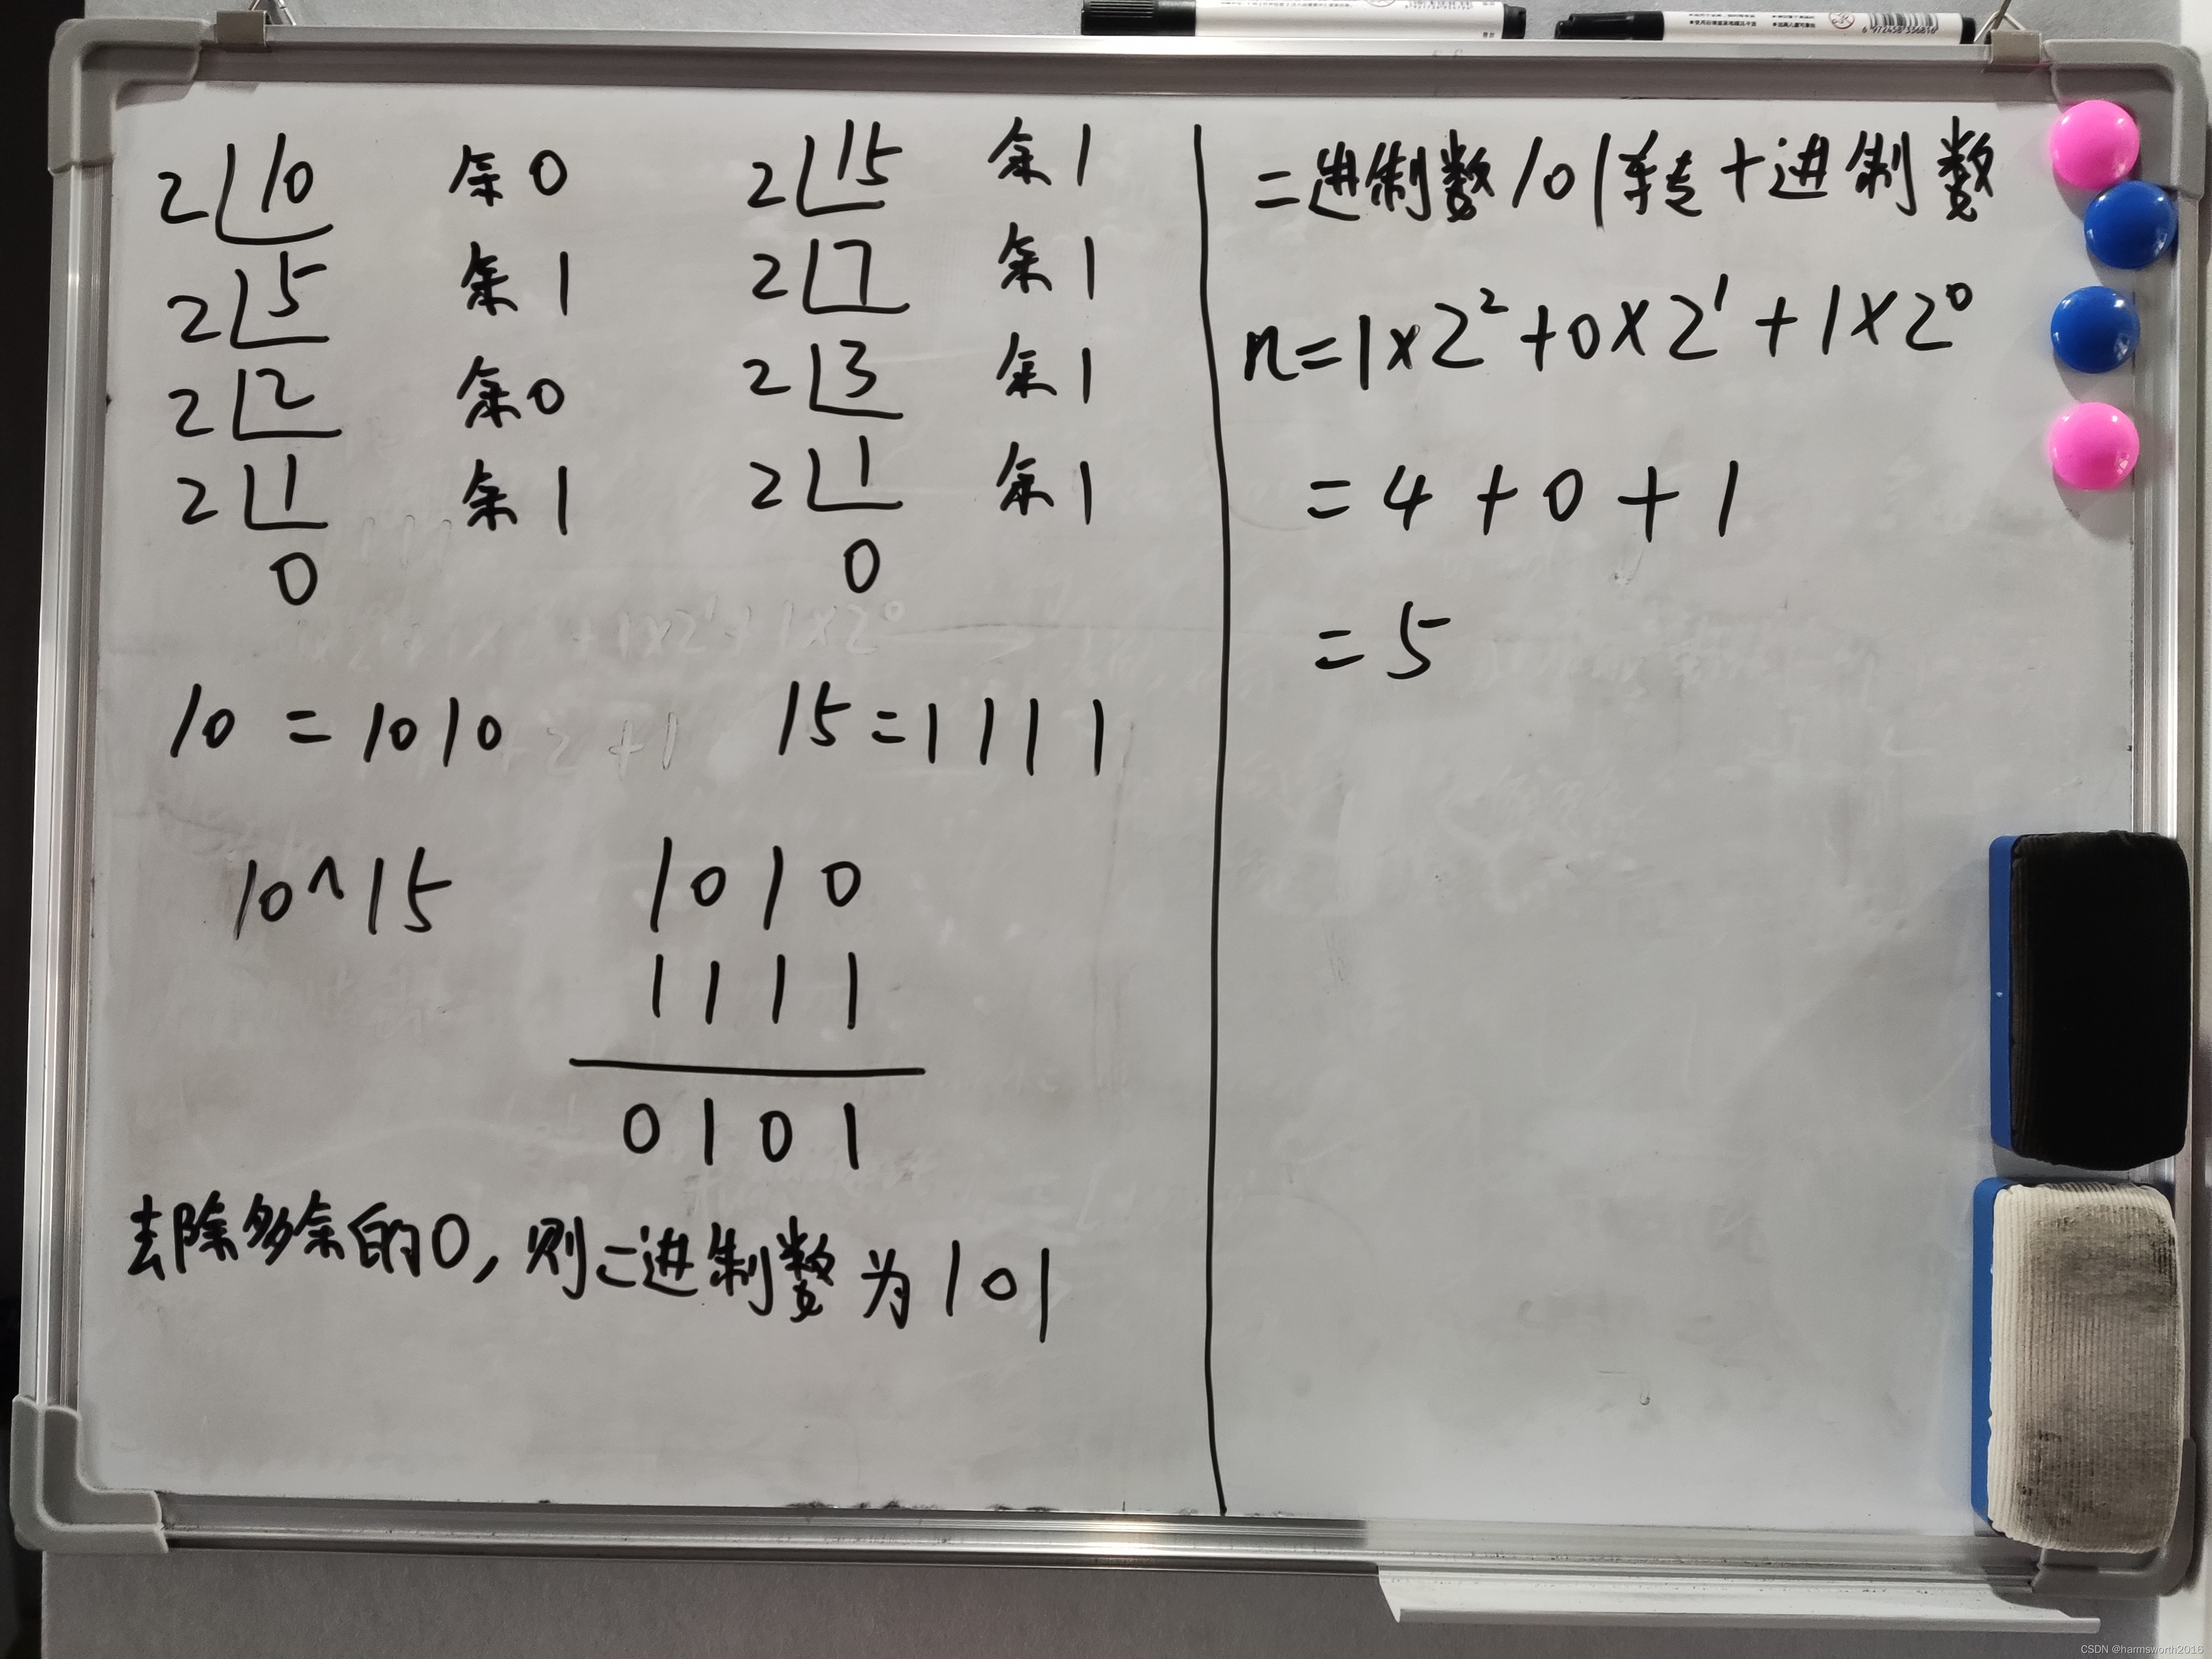 2 10 余0
2 5 余1
2 2 余0
2 1 余1
0
2 15 余1
2 7 余1
2 3 余1
2 1 余1
0
10 = 1010
15 = 1111
10^15
1010
1111
0101
去除多余的0,则二进制数为101
二进制数101转十进制数
n=1×2²+0×2¹+1×2⁰
=4+0+1
=5
6 972458 336816
CSDN @harmsworth2016